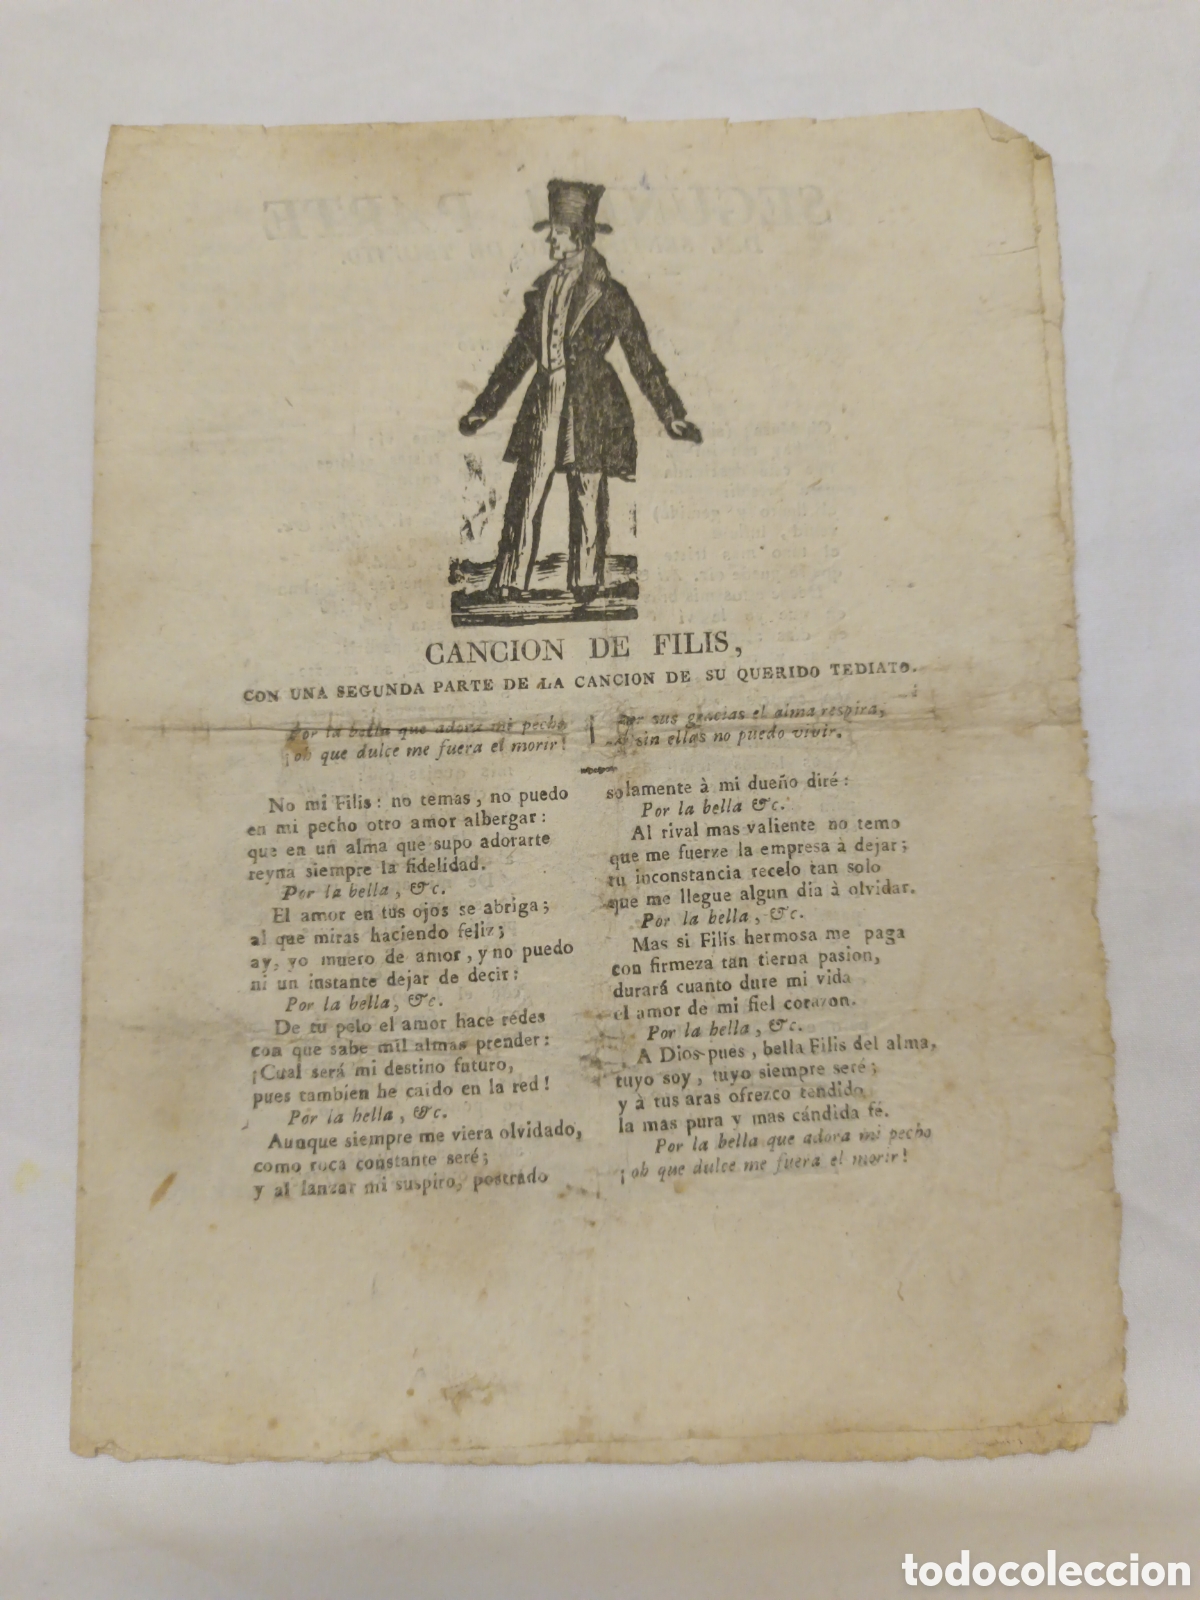 CANCION DE FILIS,
CON UNA SEGUNDA PARTE DE LA CANCION DE SU QUERIDO TEDIATO.
Por la bella que adora mi pecho
¡oh que dulce me fuera el morir!
Por sus gracias el alma respira,
sin ellas no puedo vivir.
No mi Filis: no temas, no puedo
en mi pecho otro amor albergar:
que en un alma que supo adorarte
reyna siempre la fidelidad.
Por la bella, &c.
El amor en tus ojos se abriga;
al que miras haciendo feliz;
ay, yo muero de amor, y no puedo
ni un instante dejar de decir:
Por la bella, &c.
De tu pelo el amor hace redes
con que sabe mil almas prender:
¡Cual será mi destino futuro,
pues tambien he caido en la red!
Por la bella, &c.
Aunque siempre me viera olvidado,
como roca constante seré;
y al lanzar mi suspiro, postrado
solamente à mi dueño diré:
Por la bella &c.
Al rival mas valiente no temo
que me fuerze la empresa à dejar;
tu inconstancia recelo tan solo
que me llegue algun dia à olvidar.
Por la bella, &c.
Mas si Filis hermosa me paga
con firmeza tan tierna pasion,
durará cuanto dure mi vida
el amor de mi fiel corazon.
Por la bella, &c.
A Dios pues, bella Filis del alma,
tuyo soy, tuyo siempre seré;
y à tus aras ofrezco tendido
la mas pura y mas cándida fé.
Por la bella que adora mi pecho
¡oh que dulce me fuera el morir!
todocoleccion